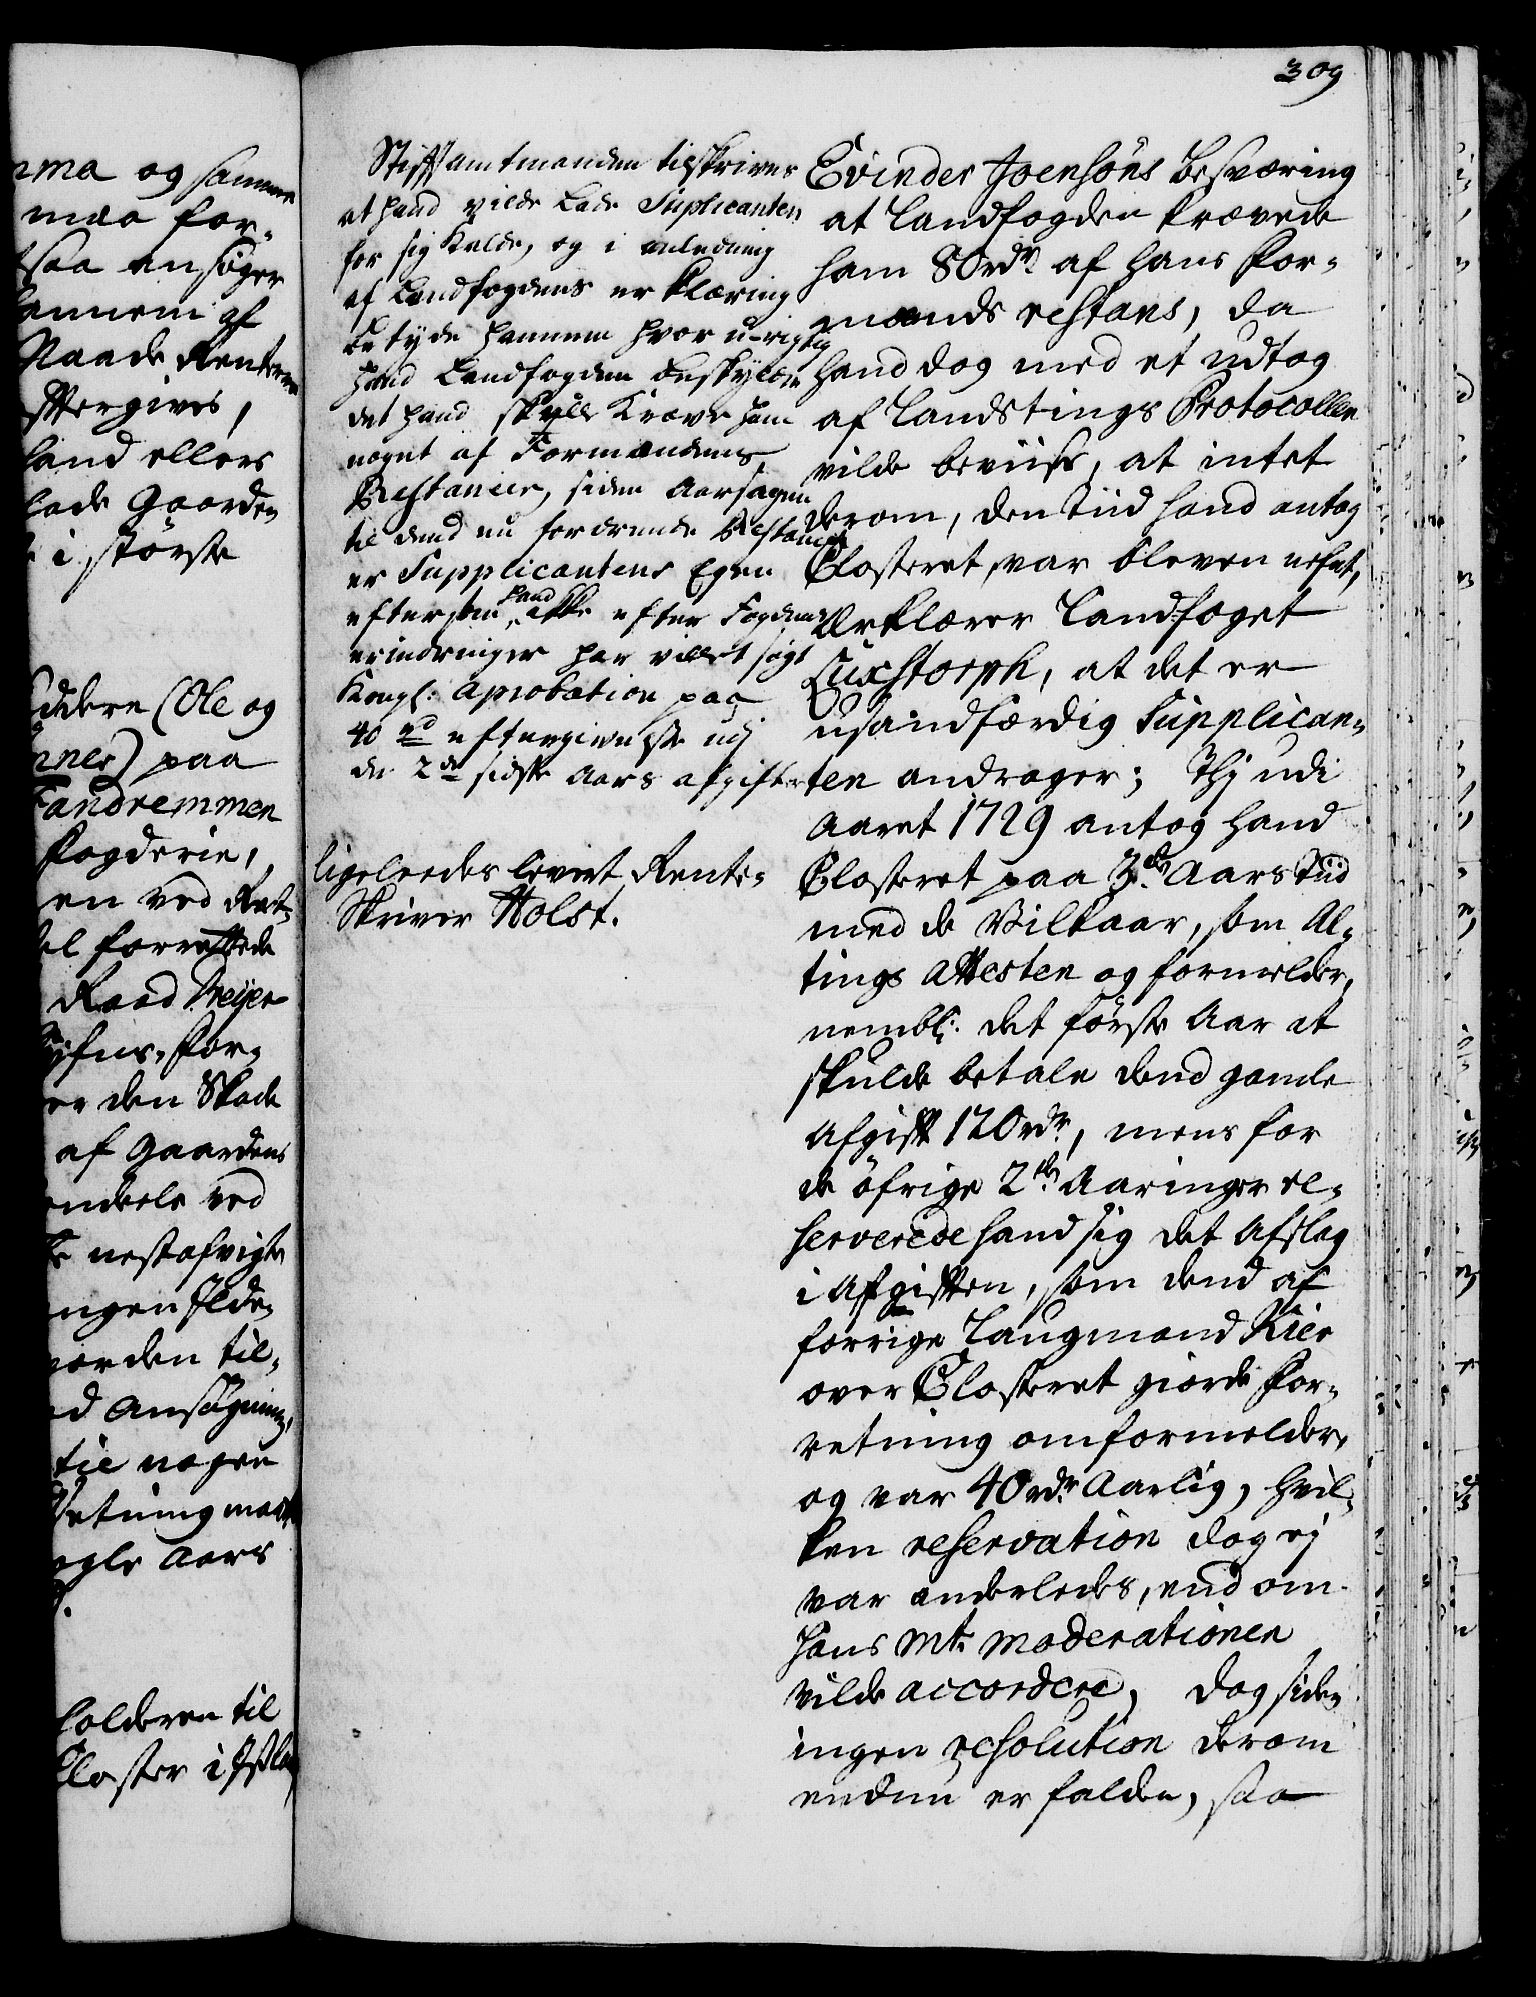 309
ma og samme
maa for-
saa ansøger
annem af
Naade Renteren
eftergives,
hand ellers
lade Gaarden
i störste
ddere (Ole og
nes) paa
Fandremmen
Fogderie,
en ved Rat-
el forrettede
Raad Meyer
For-
er den Skade
af Gaardens
endeele ved
nestafvigte
ingen Ilde-
vorden til-
d Ansøgning,
til nogen
retning maatte
nogle Aars
holderen til
Closter i Isla
Stiftamtmanden tilskrives
at hand vilde Lade Suplicanten
for sig Kalde, og i anledning
af Landfogdens erklæring
betyde hannem hvor u-rigtig
hand Landfogden beskylder
det hand skulle Kræve ham
noget af Formandens
Restancer, siden Aarsagen
til dend nu fordrende Restance
er Supplicantens Egen
eftersom hand ikke efter Fogdens
erindringer har villet søgt
Kongl: Aprobation paa
40 rd eftergivelse udj
de 2de sidste Aars afgifter
ligeleedes levert Rente-
Skriver Holst.
Evinder Joensöns besværing
at Landfogden krævede
ham 80 rdr af hans For-
mands restans, da
hand dog med et udtog
af Landstings Protocollen
vilde beviise, at intet
derom, den tiid hand antog
Closteret, var bleven nefnt,
Erklærer Landfoget
Luxstorph, at det er
usandfærdig Supplican-
ten andrager; Thj udi
Aaret 1729 antog hand
Closteret paa 3de Aars Tiid
med de Vilkaar, som Al-
tings Attesten og formelder,
nembl: det förste Aar at
skulde betale dend gamle
Afgift 120 rdr, mens for
de öfrige 2de Aaringer re-
serverede hand sig det Afslag
i Afgiften, som dend af
forrige Laugmand Kier
over Closteret giorde For-
retning omformelder,
og var 40 rdr Aarlig, hvil-
ken reservation dog ej
var anderledes, end om
Hans Mt. moderationen
vilde accordere, dog siden
ingen resolution derom
endnu er falden, saa